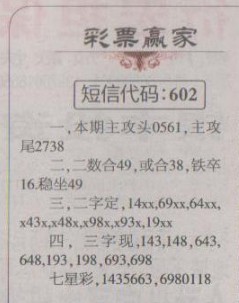 彩票赢家
短信代码:602
一,本期主攻头0561,主攻
尾2738
二,二数合49,或合38,铁卒
16.稳坐49
三,二字定,14xx,69xx,64xx,
x43x,x48x,x98x,x93x,19xx
四,三字现,143,148,643,
648,193,198,693,698
七星彩,1435663,6980118